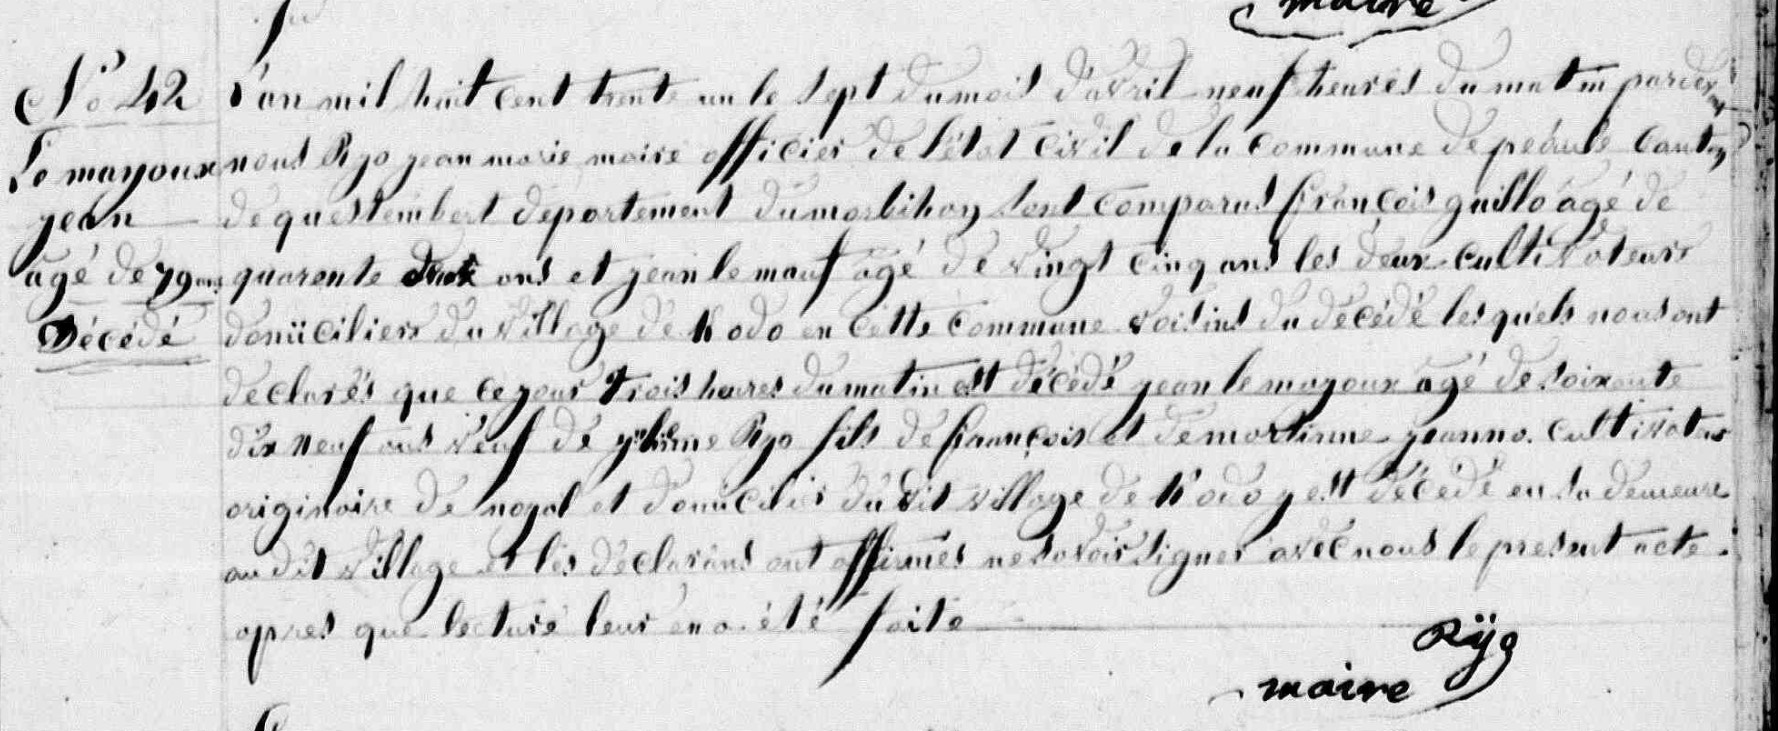 maire
N° 42
Le mayoux
jean
âgé de 79 ans
Décédé
L'an mil huit cent trente un le sept du mois d'avril neuf heures du matin pardevant
nous Ryo jean marie maire officier de l'état civil de la commune de peaule canton
de questembert departement du morbihan sont comparus françois guillo âgé de
quarente ans et jean le mauf âgé de vingt cinq ans les deux cultivateurs
domiciliers du village de Kodo en cette commune voisins du décédé lesquels nous ont
declarés que ce jour trois heures du matin est décédé jean le mayoux âgé de soixante
dix neuf ans veuf de Ryo fils de françois et de martinne jeanno cultivateur
originaire de noyal et domicilier du dit village de Kodo y est décédé en sa demeure
au dit village et les déclarans ont affirmés ne savoir signer avec nous le present acte
apres que lecture leur en a été faite
Rÿo
maire